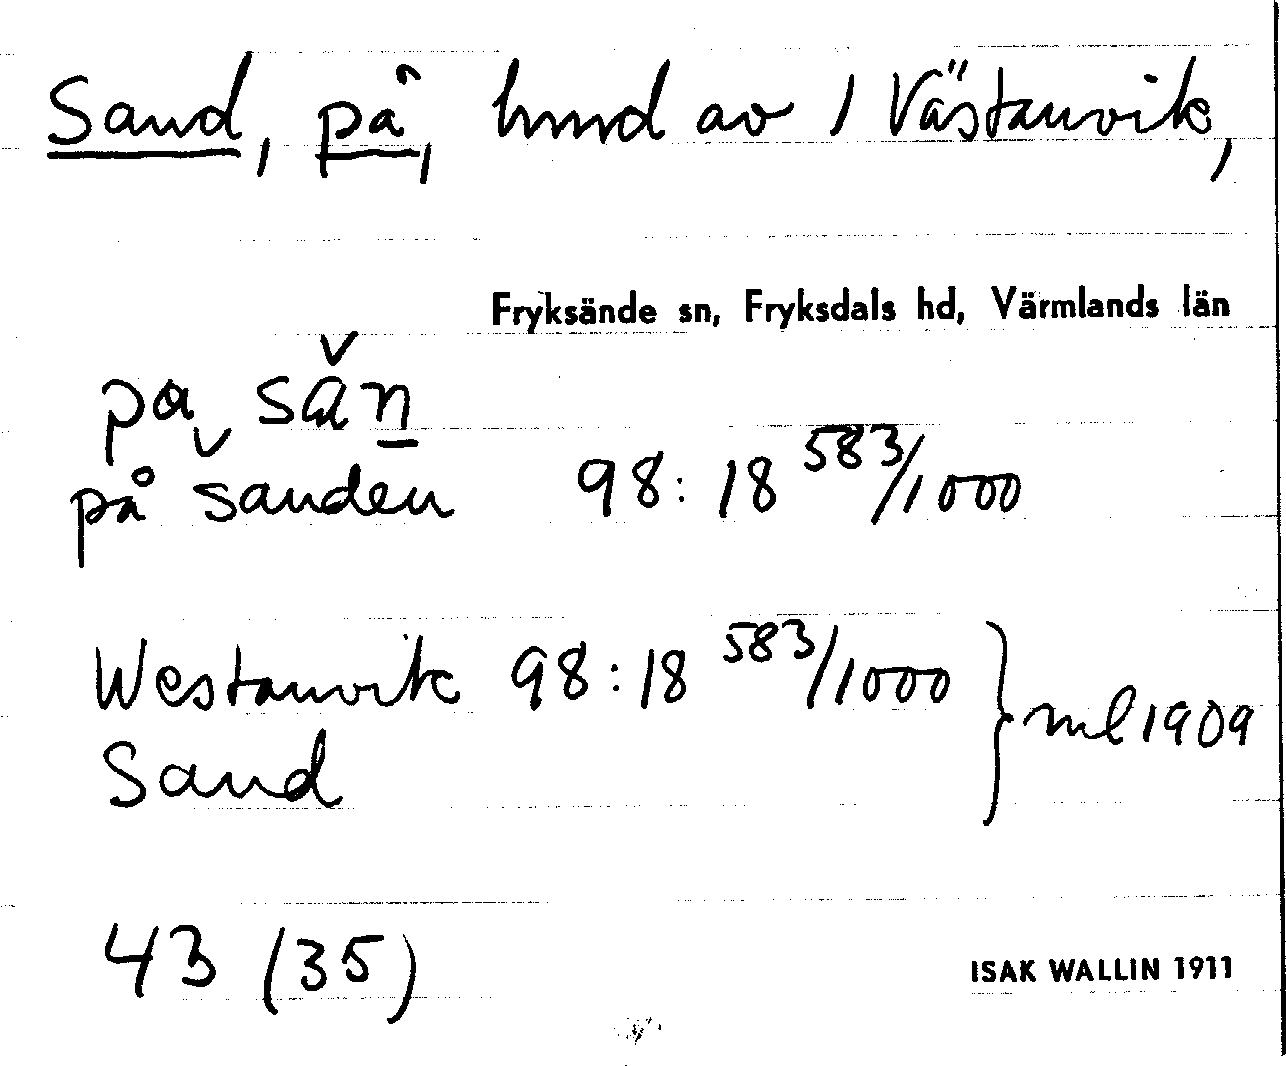 Sand, på, hmnd av 1 Västanvik,
Fryksände sn, Fryksdals hd, Värmlands län
pa sån
på sanden 98:18 583/1000
Westanvik 98:18 583/1000
Sand
ml 1909
43 (35)
ISAK WALLIN 1911